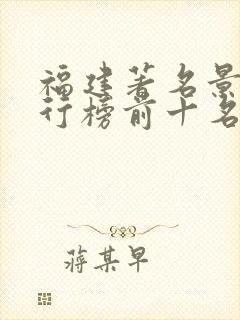 福建著名景
行榜前十名
蒋某早